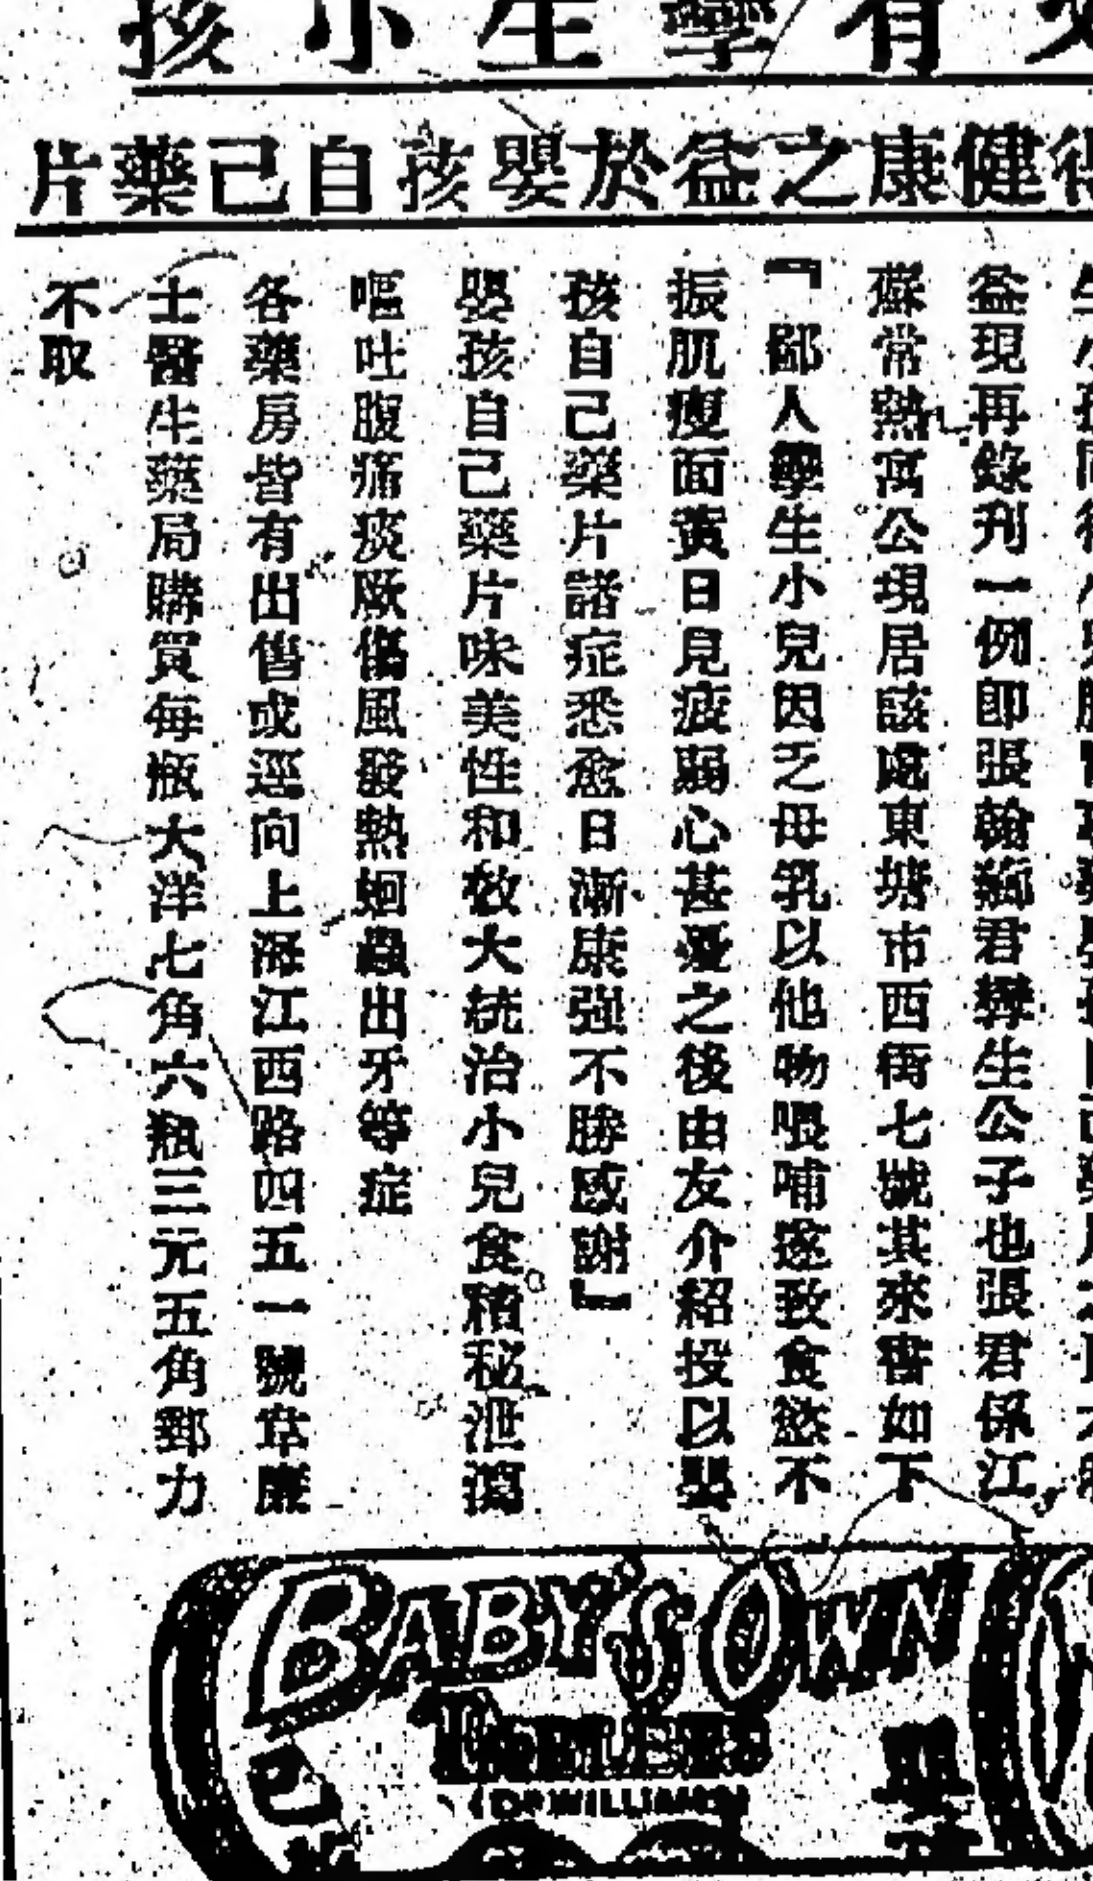 有孿生小孩
健康之益於嬰孩自己藥片
益現再錄刋一例即張翰君孿生公子也張君係江
蘇常熟寓公現居該處東塘市西街七號其來書如下
『鄙人孿生小兒因乏母乳以他物喂哺遂致食慾不
振肌瘦面黃日見疲弱心甚憂之後由友介紹投以嬰
孩自己藥片諸症悉愈日漸康强不勝感謝』
嬰孩自己藥片味美性和效大統治小兒食積秘泄瀉
嘔吐腹痛痰厥傷風發熱蛔蟲出牙等症
各藥房皆有出售或逕向上海江西路四五一號韋廉
士醫生藥局購買每瓶大洋七角六瓶三元五角郵力
不取
BABY'S OWN
TABLETS
(DR WILLIAMS)
嬰
己